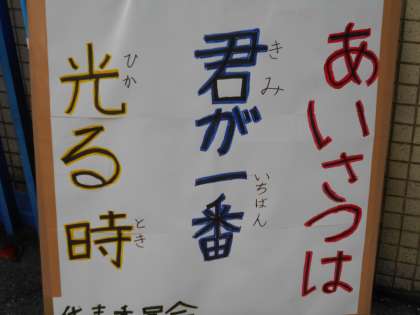 あいさつは
君が一番
きみ
いちばん
光る時
ひか
とき